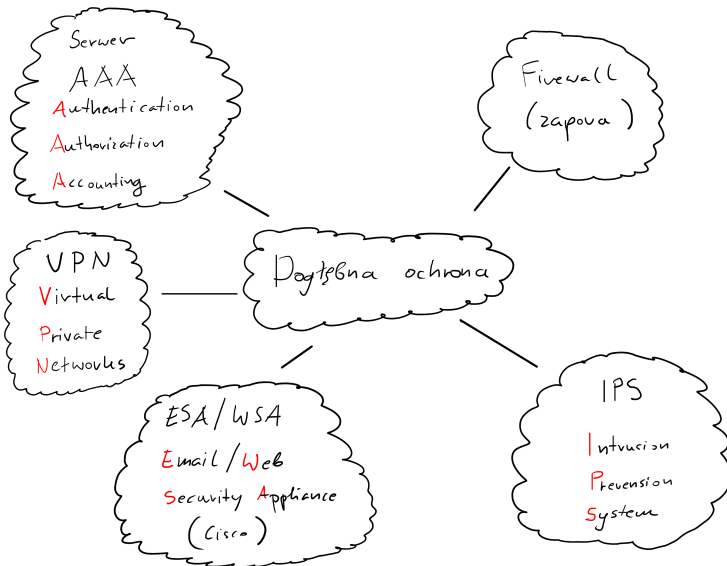 Serwer
AAA
Authentication
Authorization
Accounting
Firewall
(zapova)
Dogłębna ochrona
VPN
Virtual
Private
Networks
ESA/WSA
Email/Web
Security Appliance
(Cisco)
IPS
Intrucion
Prevension
System